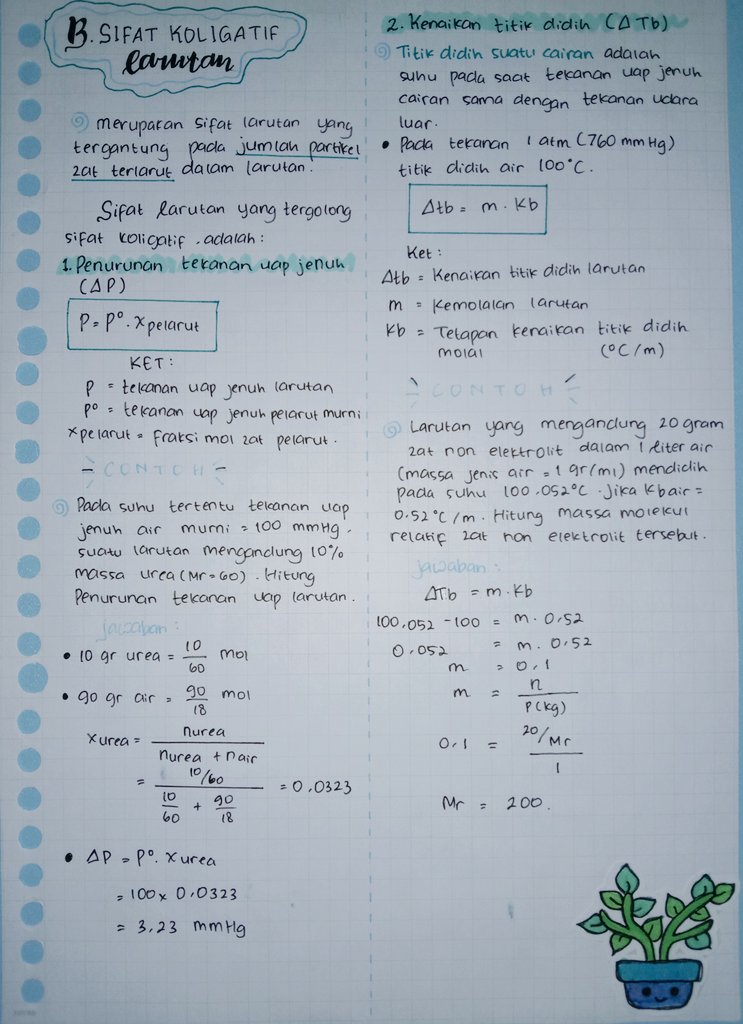 B. SIFAT KOLIGATIF
larutan
merupakan sifat larutan yang
tergantung pada jumlah partikel
zat terlarut dalam larutan.
Sifat larutan yang tergolong
sifat koligatif, adalah :
1. Penurunan tekanan uap jenuh
(ΔP)
P = P°. Xpelarut
KET :
P = tekanan uap jenuh larutan
P° = tekanan uap jenuh pelarut murni
Xpelarut = fraksi mol zat pelarut.
- CONTOH -
Pada suhu tertentu tekanan uap
jenuh air murni = 100 mmHg.
suatu larutan mengandung 10%
massa urea (Mr = 60). Hitung
Penurunan tekanan uap larutan.
jawaban :
• 10 gr urea = 10/60 mol
• 90 gr air = 90/18 mol
X urea = nurea / nurea + nair
= 10/60 / 10/60 + 90/18 = 0,0323
• ΔP = P°. X urea
= 100 x 0,0323
= 3,23 mmHg
2. Kenaikan titik didih (ΔTb)
Titik didih suatu cairan adalah
suhu pada saat tekanan uap jenuh
cairan sama dengan tekanan udara
luar.
• Pada tekanan 1 atm (760 mmHg)
titik didih air 100°C.
Δtb = m . Kb
Ket :
Δtb = Kenaikan titik didih larutan
m = Kemolalan larutan
Kb = Tetapan kenaikan titik didih
molal (°C/m)
CONTOH
Larutan yang mengandung 20 gram
zat non elektrolit dalam 1 liter air
(massa jenis air = 1 gr/ml) mendidih
pada suhu 100,052°C. Jika Kb air =
0,52°C/m. Hitung massa molekul
relatif zat non elektrolit tersebut.
jawaban :
ΔTb = m . Kb
100,052 - 100 = m . 0,52
0,052 = m . 0,52
m = 0,1
m = n / P(kg)
0,1 = 20/Mr / 1
Mr = 200.